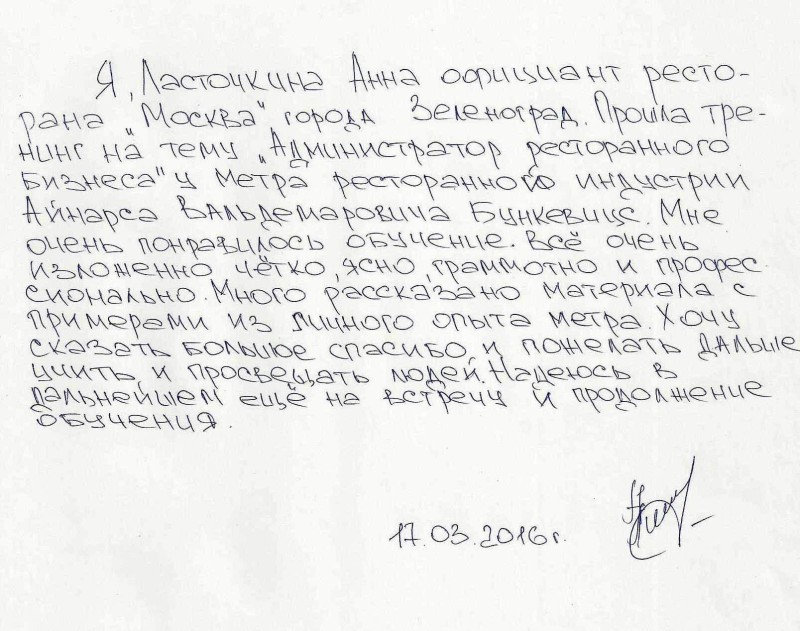 Я, Ласточкина Анна официант ресто-
рана „Москва" города Зеленоград. Прошла тре-
нинг на тему „Администратор ресторанного
бизнеса" у метра ресторанной индустрии
Айнарса Вальдемаровича Бункевицс. Мне
очень понравилось обучение. Всё очень
изложенно чётко, ясно, граммотно и профес-
сионально. Много рассказано материала с
примерами из личного опыта метра. Хочу
сказать большое спасибо, и пожелать дальше
учить и просвещать людей. Надеюсь в
дальнейшем ещё на встречу и продолжение
обучения.
17.03.2016г.